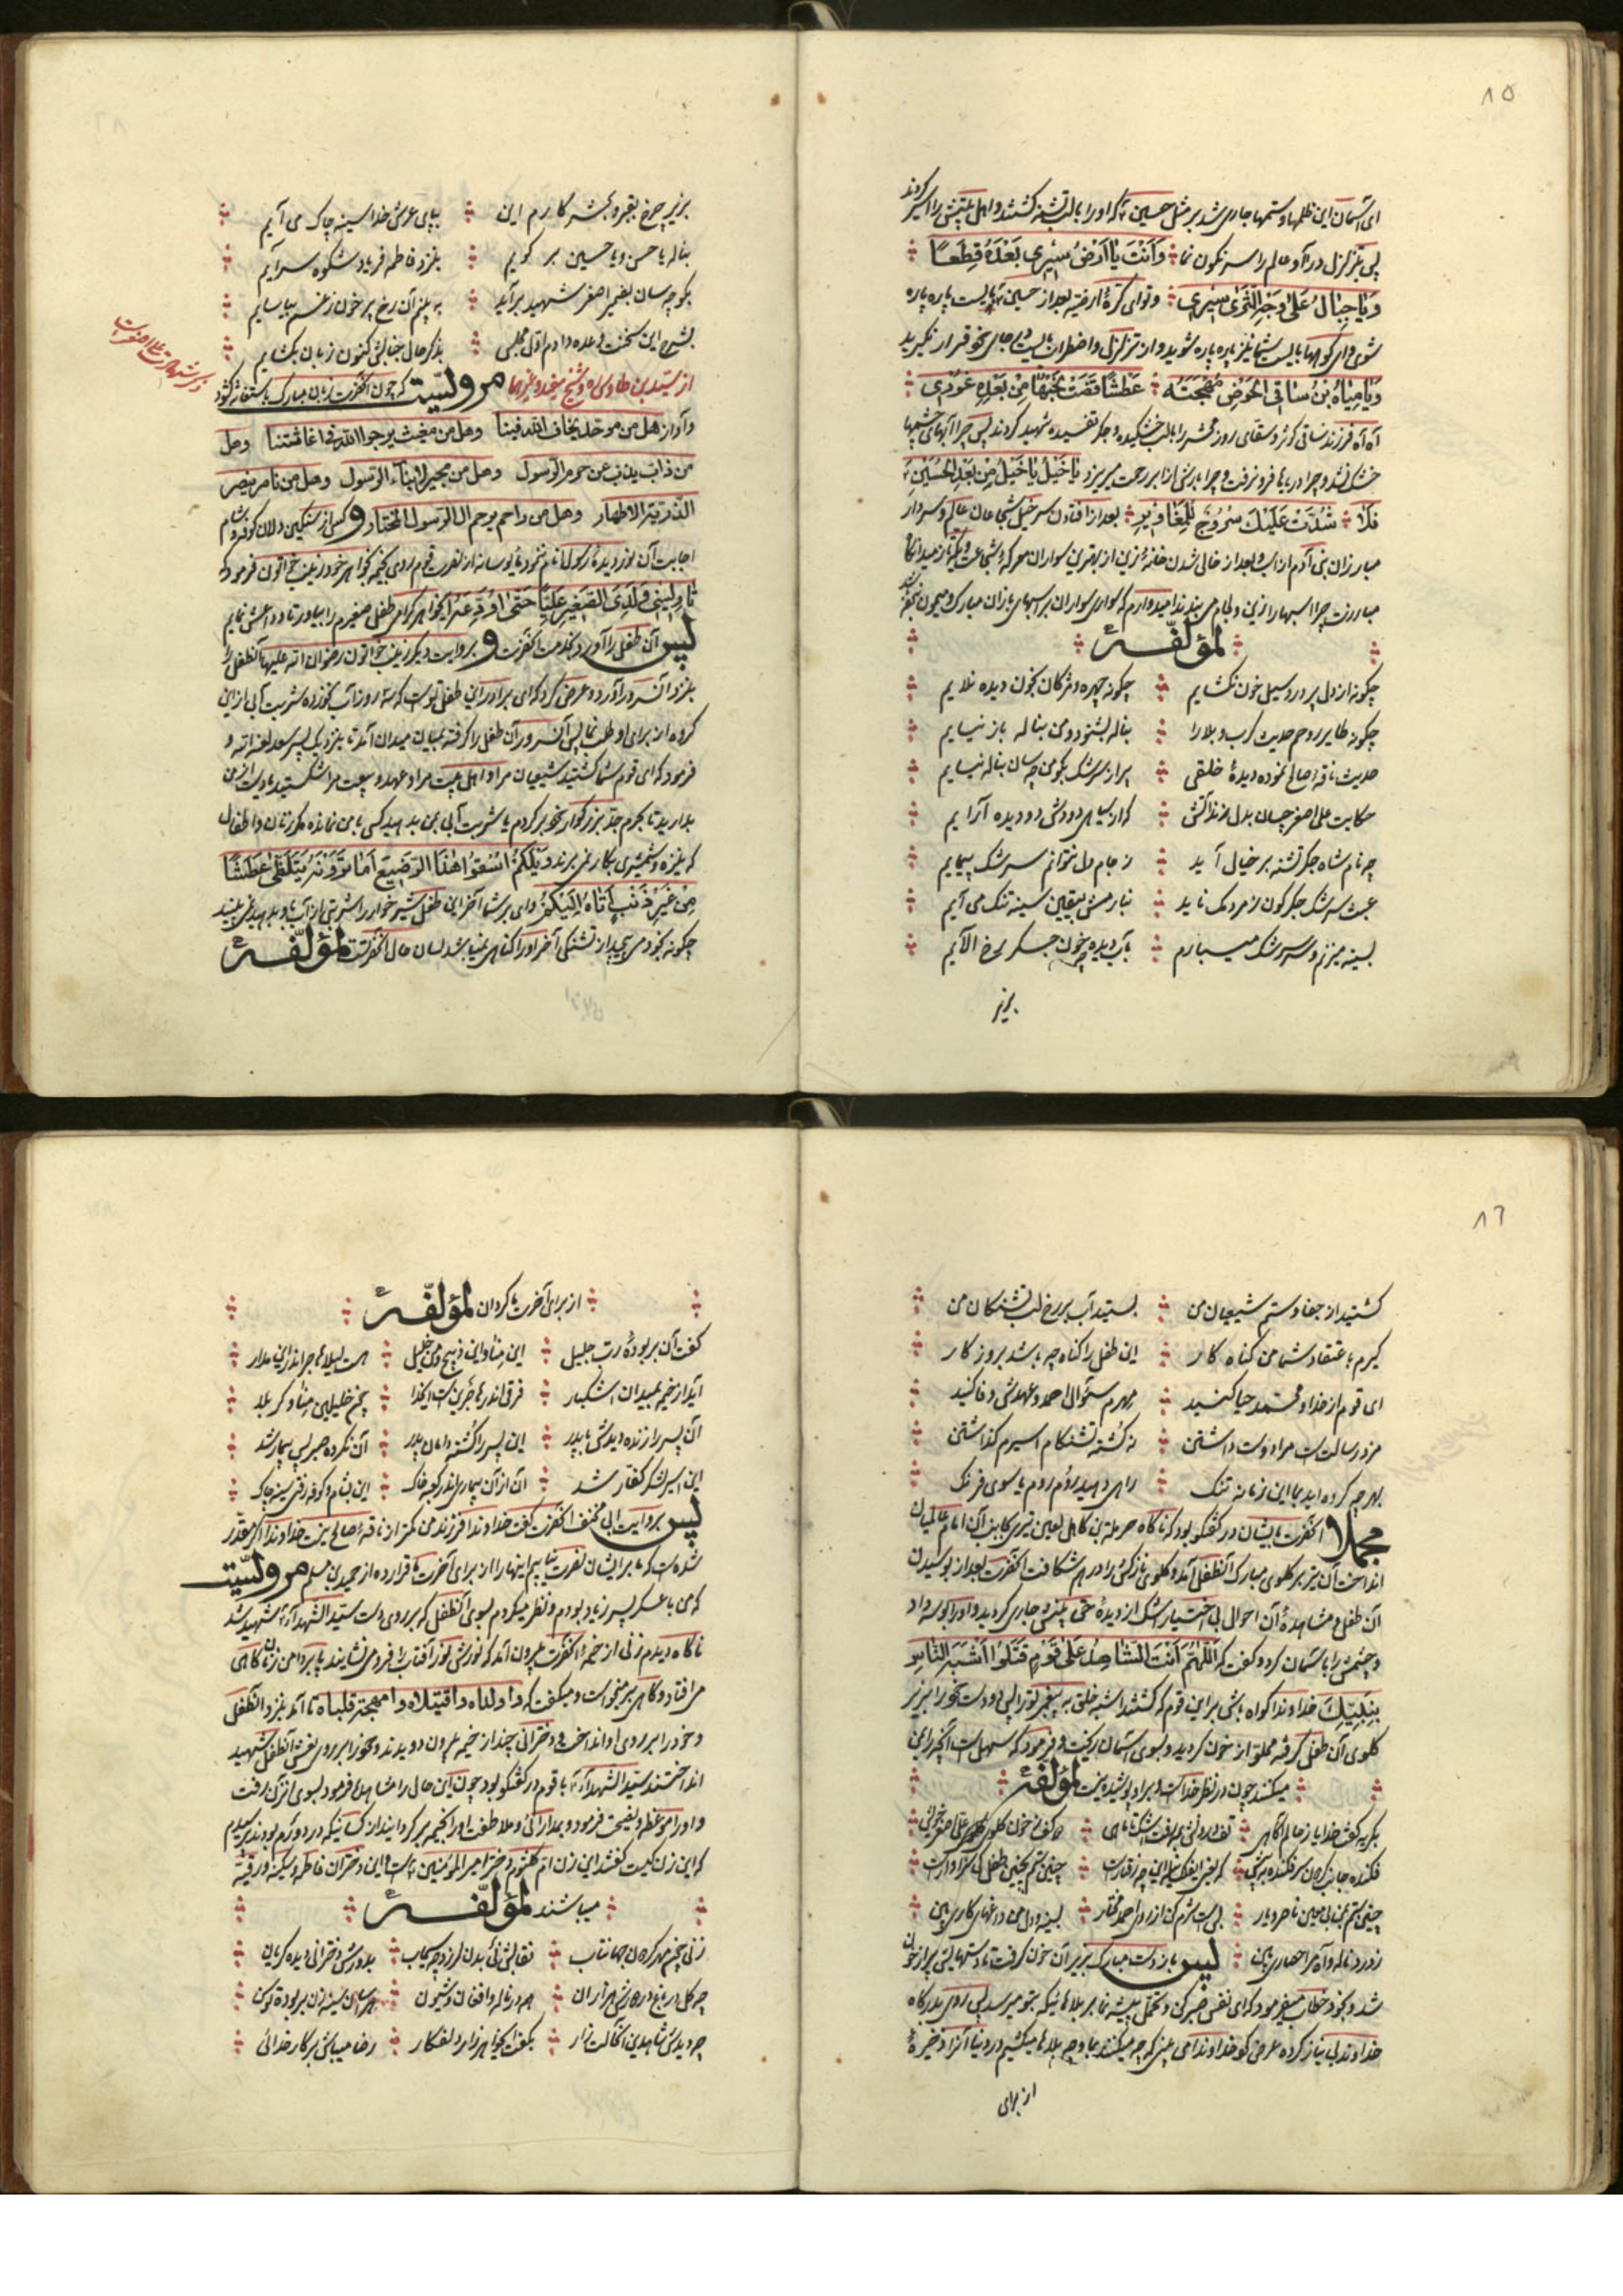 ۸۵
ای آسمان این ظلمها و ستمها جاری شد بر مثل حسین که او را با لب تشنه کشتند و اهل بیتش را اسیر کردند
پس بتزلزل درآ و عالم را سرنگون نما وَأَنْتَ یَا أَرْضُ سِیرِی بَعْدَهُ قِطَعًا
وَیَا جِبَالُ عَلَی وَجْهِ الثَّرَی سِیرِی و تو ای کرهٔ ارض بعد از حسین بایست پاره پاره
شوی و ای کوهها بایست شما نیز پاره پاره شوید و از تزلزل و اضطراب بایست در جای خود قرار نگیرید
وَیَا مِیَاهُ بْنُ سَاقِی الْحَوْضِ مُهْجَتُهُ عَطْشًا قَضَتْ نَحْبَهَا مِنْ بَعْدِهِ غُورِی
آه آه فرزند ساقی کوثر و سقای روز محشر را با لب خشکیده و جگر تفسیده شهید کردند پس چرا آبهای چشمها
خشک نشد و چرا دریاها فرو نرفت و چرا بارش از ابر رحمت میریزد یَا خَیْلُ یَا خَیْلُ مِنْ بَعْدِ الْحُسَیْنِ
فَلَا شُدَّتْ عَلَیْکَ سُرُوجٌ لِلْمَغَاوِیرِ بعد از افتادن سرخیل شجاعان عالم و سردار
مبارزان بنی آدم از اسب و بعد از خالی شدن خانهٔ زین از بهترین سواران معرکهٔ شجاعت و یکه تاز میدانگاه
مبارزت چرا اسبها را زین و لجام می بندند امیدوارم که سواری سواران بر اسبهای تازان مبارک و میمون نباشد
لمؤلّفه
چگونه از دل پر درد سیل خون نگشایم چگونه چهره و مژگان بخون دیده نلایم
چگونه طایر روحم حدیث کرب و بلا را بناله بشنود و من بناله باز نیایم
حدیث ناقهٔ صالح نموده دیدهٔ خلقی پر از سرشک بگو من چسان بناله نیایم
حکایت علی اصغر چسان بدل نزند آتش که از سیاهی دودش دو دیده آرایم
چه نام شاه جگر تشنه بر خیال آید ز جام دل نتوانم سرشک پیمایم
عبث سرشک جگرگون ز مردمک ناید نیارمش بیقین سینه تنگ می آیم
بسینه میزنم و سرسرشک میبارم بآب دیده و خون جگر رخ آلایم
بزیر
بزیر چرخ بقبر و بحشر کارم این بپای عرش خدا سینه چاک می آیم
بناله یا حسن و یا حسین بر گویم بنزد فاطمه فریاد شکوه سرآیم
بگو چه سان بغم اصغر شهید برآید به بینم آن رخ پر خون ز غم بیاسایم
بشرح این سخنت وعده دادم اول مجلس بذکر حال جنابش کنون زبان بگشایم
ذکر شهادت علی اصغر است
از سید بن طاوس و شیخ مفید و غیرهما مرویست که چون آنحضرت زبان مبارک باستغاثه گشود
و آواز هل من موحد یخاف الله فینا وهل من مغیث یرجوا الله فی اغاثتنا وهل
من ذاب یذب عن حرم الرسول وهل من مجیر لابناء الرسول وهل من ناصر ینصر
الذریة الاطهار وهل من راحم یرحم ال الرسول المختار و کس از سنگین دلان کوفه و شام
اجابت آن نور دیدهٔ رسول انام ننمود مایوسانه از نصرت قوم روی بخیمه بخواهر خود زینب خواتون فرمود که
نَاوِلِینِی وَلَدِیَ الصَّغِیرَ عَلِیًّا حَتَّی أُوَدِّعَهُ ای خواهر گرامی طفل صغیرم را بیاور تا وداعش نمایم
پس آن طفل را آورد بخدمت آنحضرت و بروایت دیگر زینب خواتون رضوان الله علیها آن طفل را
بنزد آنسرور آورد و عرض کرد که ای برادر این طفل توست که سه روز آب نخورده شربت آبی از این
گروه از برای او طلب نما پس آنسرور آن طفل را گرفته بمیان میدان آمد تا بنزدیک پسر سعد لعنه الله و
فرمود که ای قوم شما کشتید شیعیان مرا و اهل بیت مرا و عهد و بیعت مرا شکستید دست از من
بدارید تا بحرم جد بزرگوار خود برگردم یا شربت آبی بمن بدهید کسی با من نمانده مگر زنان و اطفال
که نیزه و شمشیری بکار نمی برند وَیْلَکُمْ اسْقُوا هَذَا الرَّضِیعَ أَمَا تَرَوْنَهُ یَتَلَظَّی عَطَشًا
مِنْ غَیْرِ ذَنْبٍ أَتَاهُ إِلَیْکُمْ وای بر شما آخر این طفل شیر خوار را شربتی از آب بدهید نمی بینید
چگونه بخود می پیچد از تشنگی آخر او را گناهی نمیباشد لسان حال آنحضرت لمؤلّفه
۸۶
کشتید از جفا و ستم شیعیان من بستید آب بر رخ لب تشنگان من
گیرم باعتقاد شما من گناه کار این طفل را گناه چه باشد بروزگار
ای قوم از خدا و محمد حیا کنید مهرم سئوال احمد و عهدش وفا کنید
مزد رسالت است مرا دوست داشتن نه کشته تشنه کام اسیرم گذاشتن
بهر چه کرده اید بما این زمانه تنگ راهی دهید روم روم یا سوی فرنگ
مجملا آنحضرت با ایشان در گفتگو بود که ناگاه حرملة بن کاهل لعین تیری بجانب آن امام عالمیان
انداخت آن تیر بر گلوی مبارک آن طفل آمد و گلوی نازکش را درهم شکافت آنحضرت بعد از بوسیدن
آن طفل و مشاهدهٔ آن احوال بی اختیار اشک از دیدهٔ حق بینش جاری گردید و او را بوسه داد
و چشمش را بآسمان کرد و گفت که اَللَّهُمَّ أَنْتَ الشَّاهِدُ عَلَی قَوْمٍ قَتَلُوا أَشْبَهَ النَّاسِ
بِنَبِیِّکَ خداوندا گواه باش بر این قوم که کشتند اشبه خلق به پیغمبر تو را پس دو دست خود را بزیر
گلوی آن طفل گرفته مملو از خون گردید و بسوی آسمان ریخت و فرمود که سهل است آنچه با من
میکنند چون در نظر خداست و بر او پوشیده نیست لمؤلّفه
بگریه گفت خدایا ز حالم آگاهی
فکنده جانب گردون
چنین ستم بمن بی معین ناصر و یار بس است شرم کن از روی احمد مختار بسینه و دل من داغهای کاری بین
ز درد ناله و آه مرا حصاری بین پس باز دست مبارک بزیر آن خون گرفت تا دستهایش پر از خون
شد و بخود خطاب میفرمود که ای نفس صبر کن و تحمل پیشه نما بر بلاهائیکه بتو میرسد پس روی بدرگاه
خداوند بی نیاز کرده عرض کرد خداوندا می بینی که چه میکنند بما و چه بلاها میکشیم در دنیا آنرا ذخیرهٔ
از برای
از برای آخرت ما گردان لمؤلّفه
گفت آن بر بودهٔ رب جلیل این منا و این ذبیح و من خلیل
آید از خیمه بمیدان اشکبار
آن پسر را زنده دیدش با پدر این پسر را کشته دامان پدر آن نکرده صبر پس بیمار شد
این اسیر لشکر کفار شد این بشام و کوفه رفتی سینه چاک
پس بروایت ابی مخنف آنحضرت گفت خداوندا فرزند من کمتر از ناقهٔ صالح نیست خداوندا اگر مقدر
شده است که ما بر ایشان نصرت نیابیم اینها را از برای آخرت ما قرار ده از حمید بن مسلم مرویست
که من با عسکر پسر زیاد بودم و نظر میکردم بسوی آن طفل که بر روی دست سید الشهداء شهید شد
ناگاه دیدم زنی از خیمهٔ آنحضرت بیرون آمد که نورش نور آفتاب را فرو می نشایند پا بر دامن زنان گاهی
می افتاد و گاهی بر میخواست و میگفت که وا ولداه وا قتیلاه وا مهجة قلباه تا آمد بنزد آن طفل
و خود را بر روی او انداخت و دختران چند از خیمه بیرون دویدند و خود را بر روی نعش آن طفل شهید
انداختند سید الشهداء با قوم در گفتگو بود چون این حال را مشاهده فرمود بسوی آنزن رفت
و او را موعظه و نصیحت فرمود و بمدارائی و ملاطفت او را بخیمه بر گردانید از کسانیکه در دورم بودند پرسیدم
که این زن کیست گفتند این زن ام کلثوم دختر امیر المؤمنین است و این دختران فاطمه و سکینه و رقیه
میباشند لمؤلّفه
زنی چشم مهر گردون جهانتاب نقابش نی بدن لرزد چو سیماب بدورش دخترانی دیده گریان
چه گل در باغ و در دورش هزاران همه در ناله و افغان و شیون
چه دیدش شاه دین آنحالت زار بگفت ای خواهر زار دلفکار رضا میباش بر کار خدائی